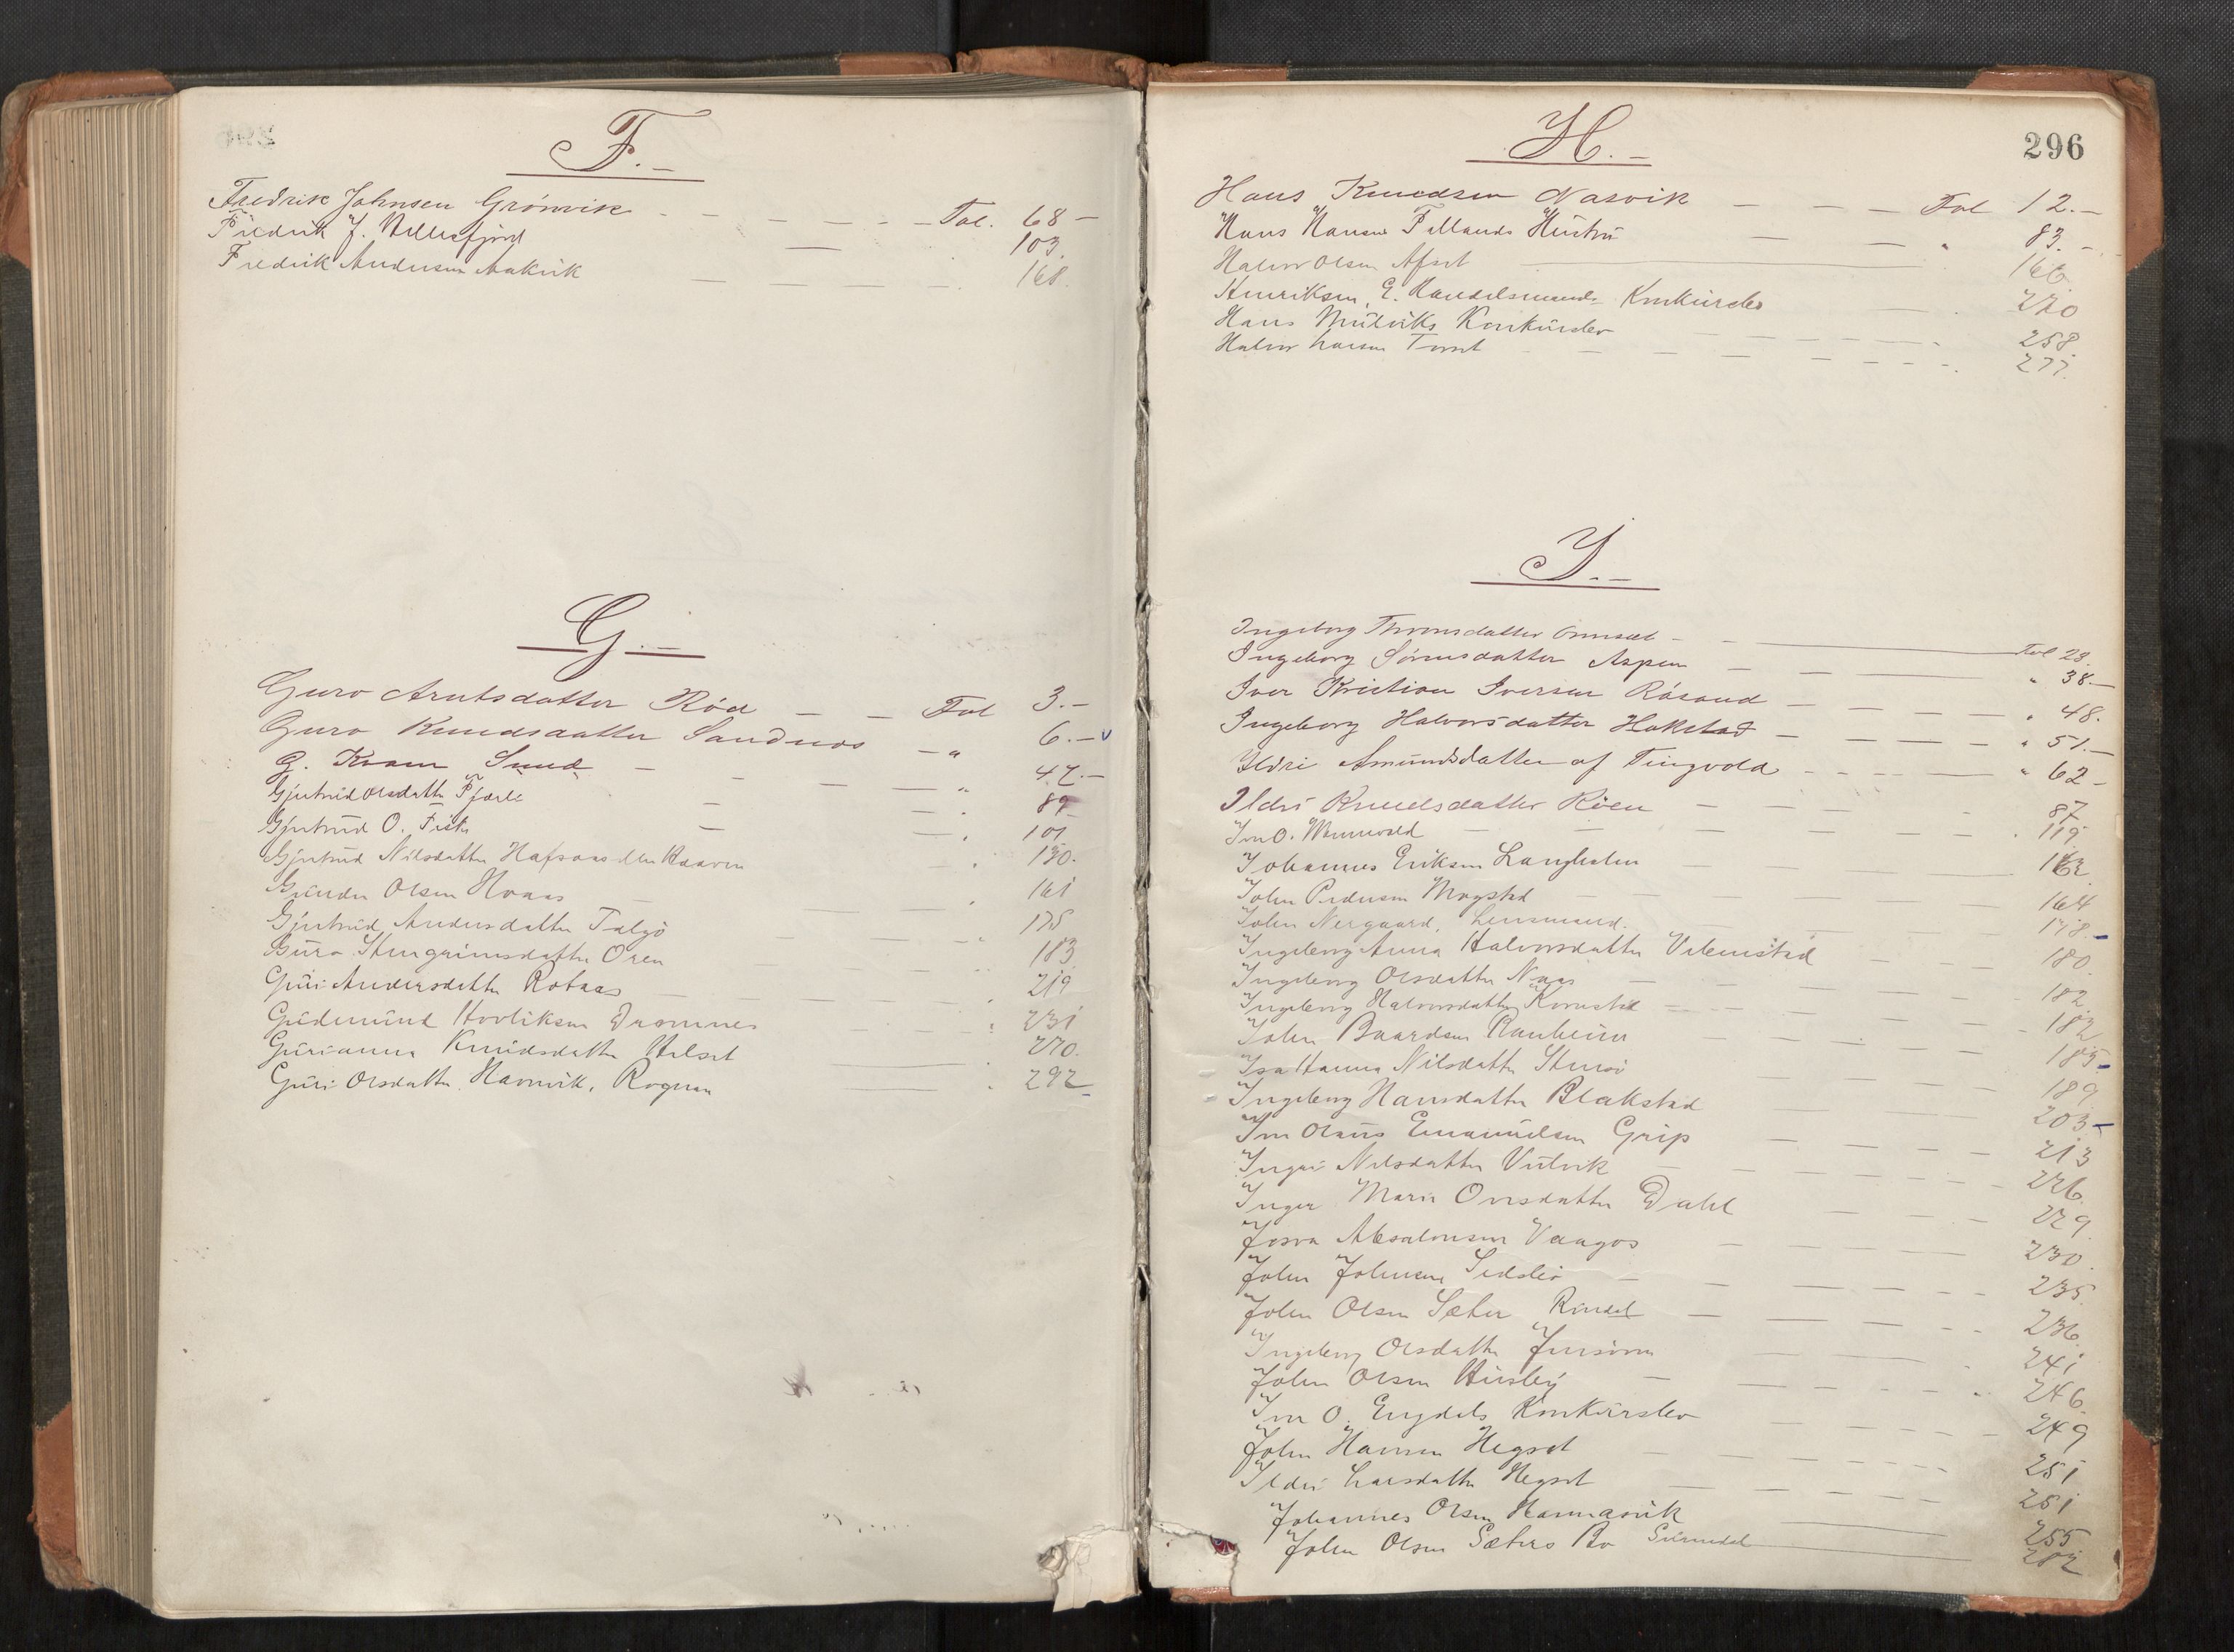 F.-
Fredrik Johnsen Grönvik Fol. 68 -
Fredrik J. 103.
Fredrik Andersen Aakvik 168.
G.-
Guro Arntsdatter Röd Fol 3.-
Guro Knudsdatter Sandnes " 6.-
G. Kvam Sund " 47.-
Gjertrud Olsdatter 89
Gjertrud O. Fiske 101
Gjertrud Nilsdatter Hafsaas eller 130.
Gunder Olsen 161
Gjertrud Andersdatter Talgö 175
Guro Stengrimsdatter Ören 183
Guri Andersdatter Rotaas 219
Gudmund Dromnes 231
Gurianna Knudsdatter Helset 270.
Guri Olsdatter Havnvik, Rognan 292
296
H.-
Hans Knudsen Nasvik Fol 12.-
Hans Hansen Fallands Hustru " 83.-
Halvor Olsen Afset 166
Henriksen, E. Handelsmands Konkursbo 270
Hans Konkursbo 258.
Halvor Larsen 277.
I.-
Ingeborg Thronsdatter Fol 23.
Ingeborg Sörensdatter Aspen " 38.-
Iver Kristian Iversen Rösand " 48.
Ingeborg Halvorsdatter Hakstad " 51.-
Ildri Amundsdatter af Tingvold " 62 -
Ildri Knudsdatter Röen 87
O. 119.
Johannes Eriksen Langholen 162
John Pedersen Mogstad 164
John Nergaard, Lensmand. 178.-
Ingeborg Anna Halvorsdatter 180
Ingeborg Olsdatter Naas 182
Ingeborg Halvorsdatter 182
John Baardsen Ranheim 185
Hanna Nilsdatter 189
Ingeborg Hansdatter Blakstad 203
Olaus Emanuelsen Grip 213
Ingri Nilsdatter Vulvik 226.
Inger Marie Dahl 229
Absalonsen Vaagos 230.
John Johnsen 235.
John Olsen Sæter Rindal 236
Ingeborg Olsdatter 241
John Olsen Husby 246
O. Engdals Konkursbo 249
John Hansen Hegset 251
Ildri Larsdatter Hegset 251
Johannes Olsen 255
John Olsen Sæters Bo Surnedal